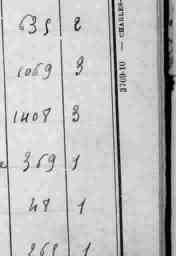 635 2
1069 3
1408 3
369 1
48 1
1
3769-10 — CHARLES-